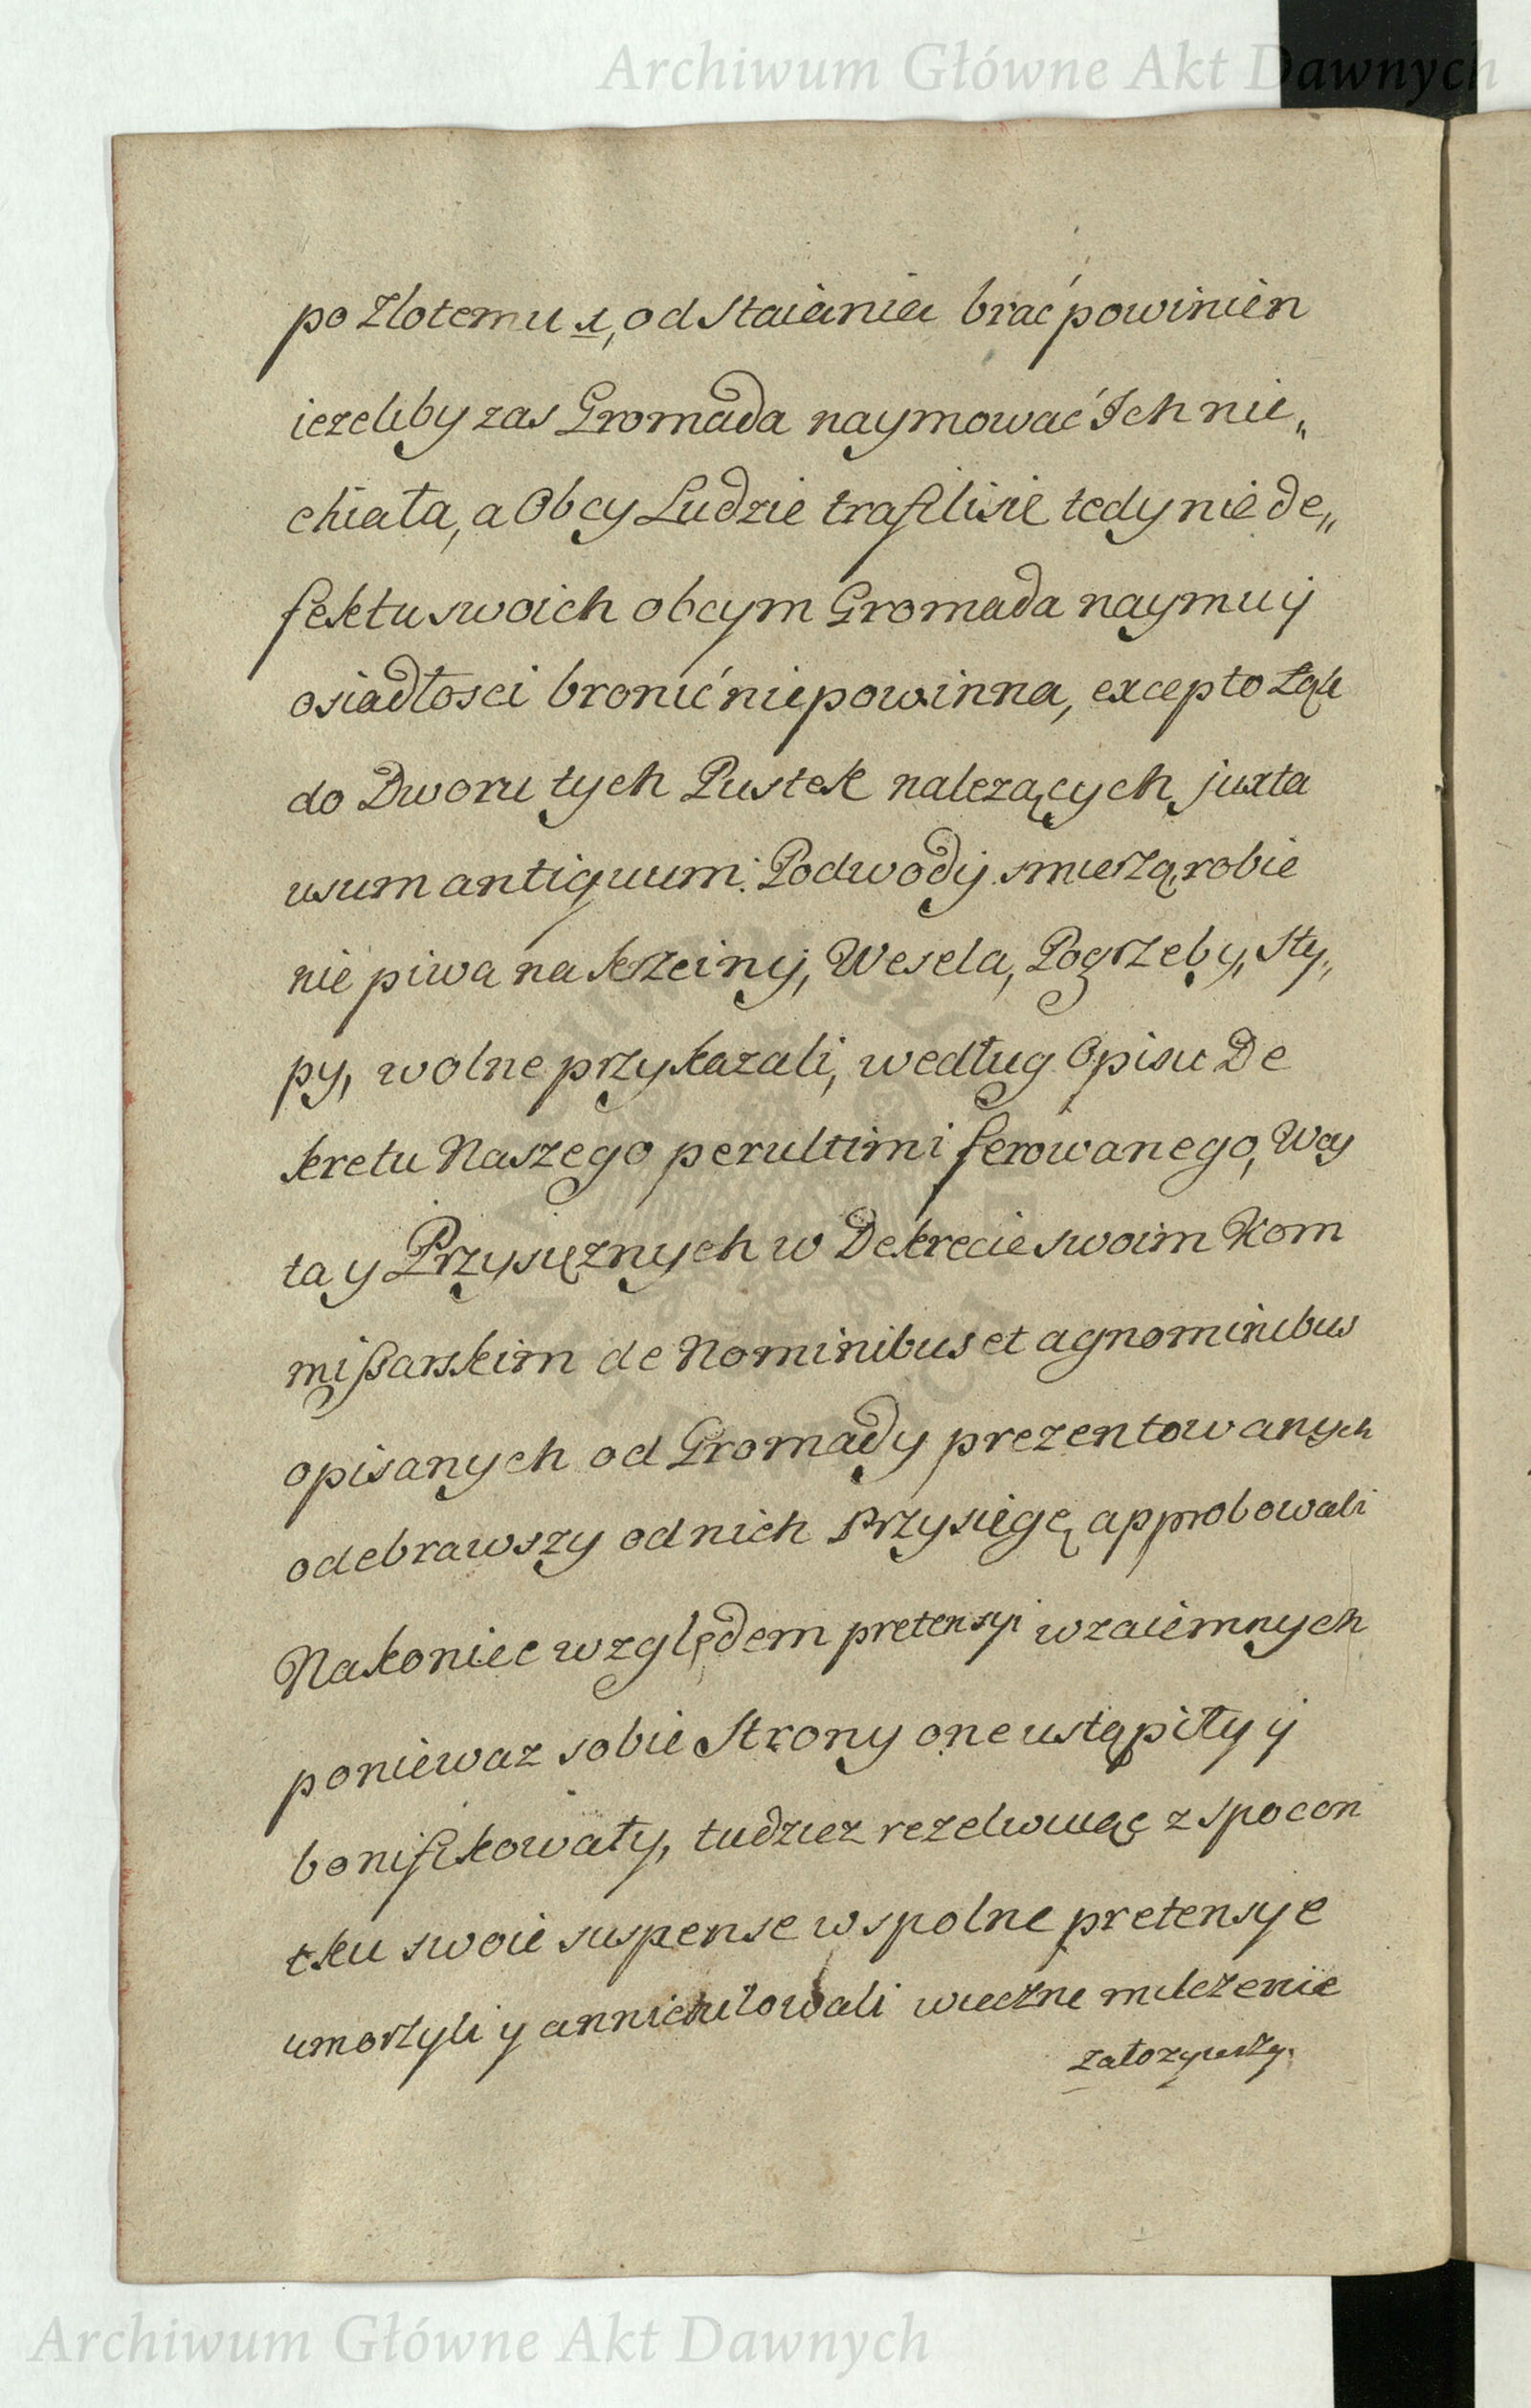 Archiwum Główne Akt Dawnych
po Zlotemu 1, od Staiania brać powinien
iezeliby zas Gromada naymować Ich nie„
chiała, a Obcy Ludzie trafili sie tedy nie de„
fektu swoich obcym Gromada naymu ÿ
osiadłosci bronić niepowinna, excepto Łąk
do Dworu tych Pustek nalezących, juxta
usum antiquum. Podwody smieszą robie
nie piwa na krzciny, Wesela, Pogrzeby, Sty„
py, wolne przykazali, według Opisu De
kretu Naszego perultimi ferowanego, Woy
ta y Przysięznych w Dekrecie swoim Kom
mißarskim de Nominibus et agnominibus
opisanych od Gromady prezentowanych
odebrawszy od nich Przysiegę approbowali
Nakoniec względem pretensyi wzaiemnych
poniewaz sobie Strony one ustąpiły ÿ
bonifikowały, tudziez z spocon
tku swoie suspense wspolne pretensye
umorzyli y annichilowali wieczne milczenie
załozywszy.
Archiwum Główne Akt Dawnych